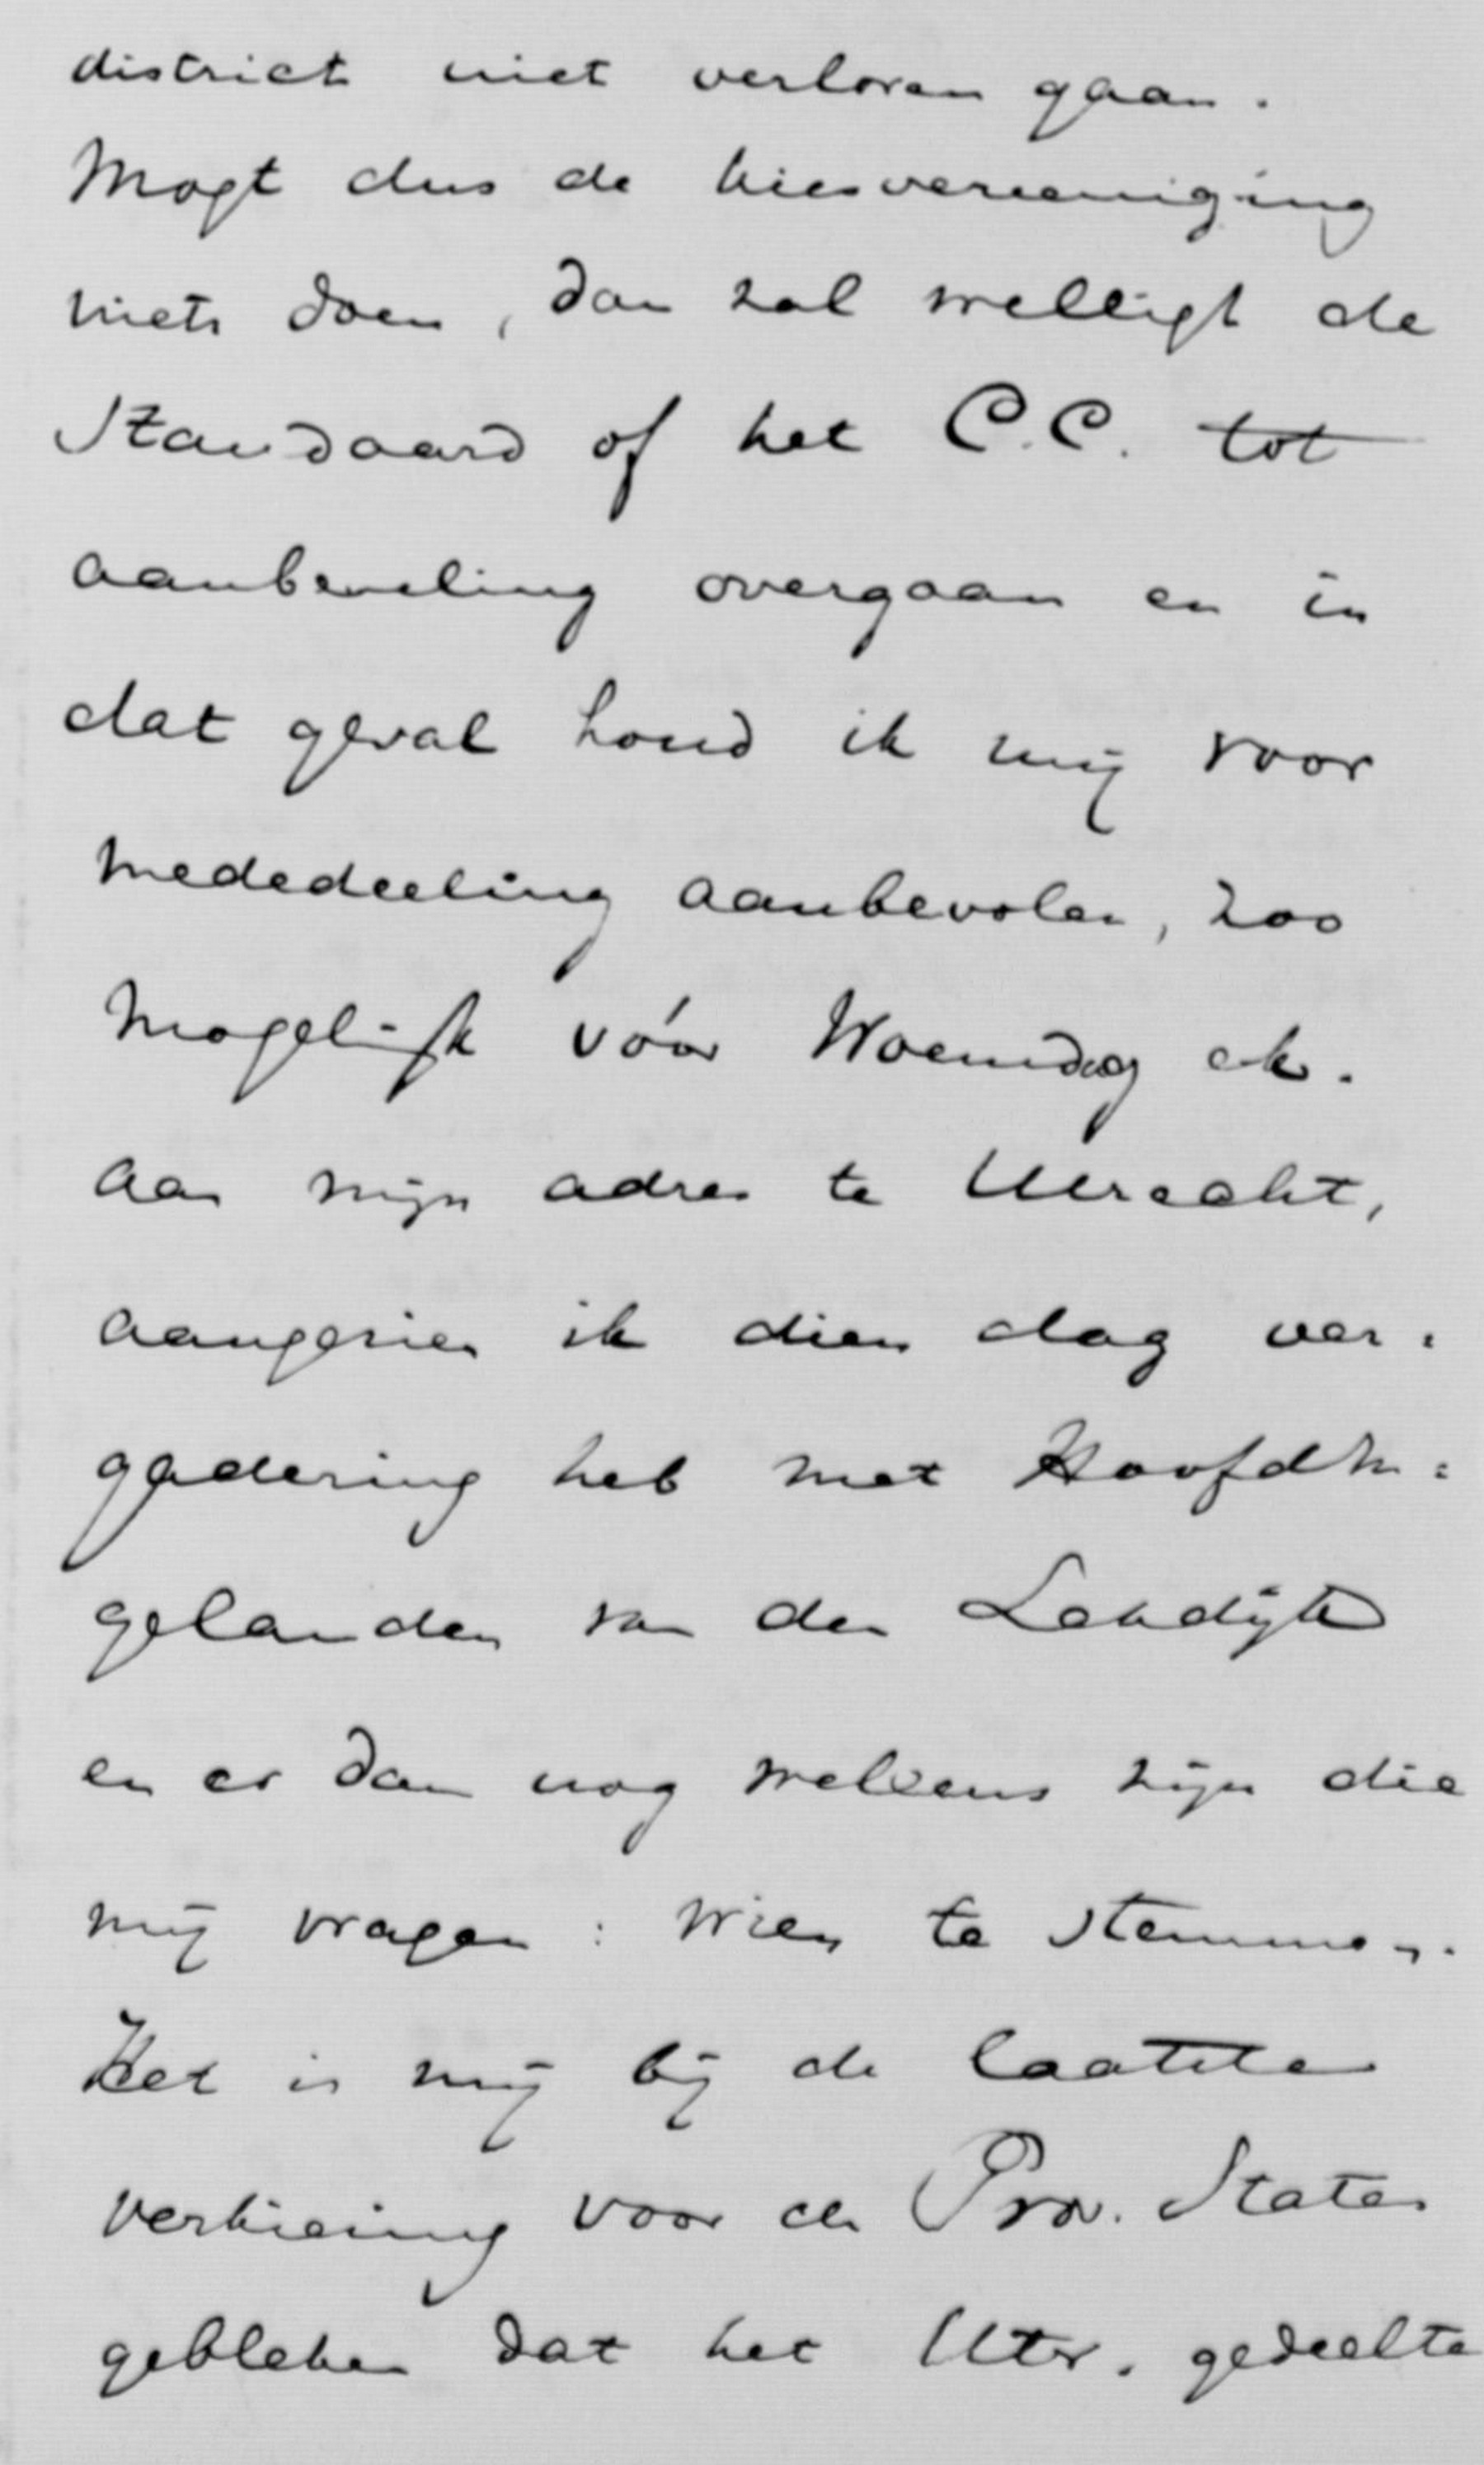 district niet verloren gaan.
Mogt dus de kiesvereeniging
niets doen, dan zal welligt de
Standaard of het C.C. tot
aanbeveling overgaan en in
dat geval houd ik mij voor
mededeeling aanbevolen, zoo
mogelijk vóór Woensdag ek.
aan mijn adres te Utrecht,
aangezien ik dien dag ver=
gadering heb met Hoofdin=
gelanden van den Lekdijk
en er dan nog weleens zijn die
mij vragen: wien te stemmen.
Het is mij bij de laatste
verkiezing voor de Prov. Staten
gebleken dat het Utr. gedeelte